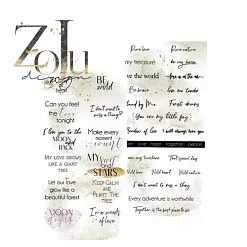 ZoJu
design
heart
BE
wild
Can you feel
the Love
tonight
I don't want to
miss a thing
I love you to the
MOON
AND
BACK
Make every
moment
count
MY LOVE GROWS
LIKE A GIANT
TREE
MY
STARS
Let our love
grow like a
beautiful forest
KEEP CALM
AND
PLANT THE
TREE
MOON
In a
of love
Pure love
Pure nature
my treasure
in my heart
love the world
Stand by Me
Forest dreams
You are my little boy
I will always love you
love hope together people
my sunshine
Sweet dreams
Real love
Wild love
I don't want to miss a thing
Every adventure is worthwhile
Together is the best place to be